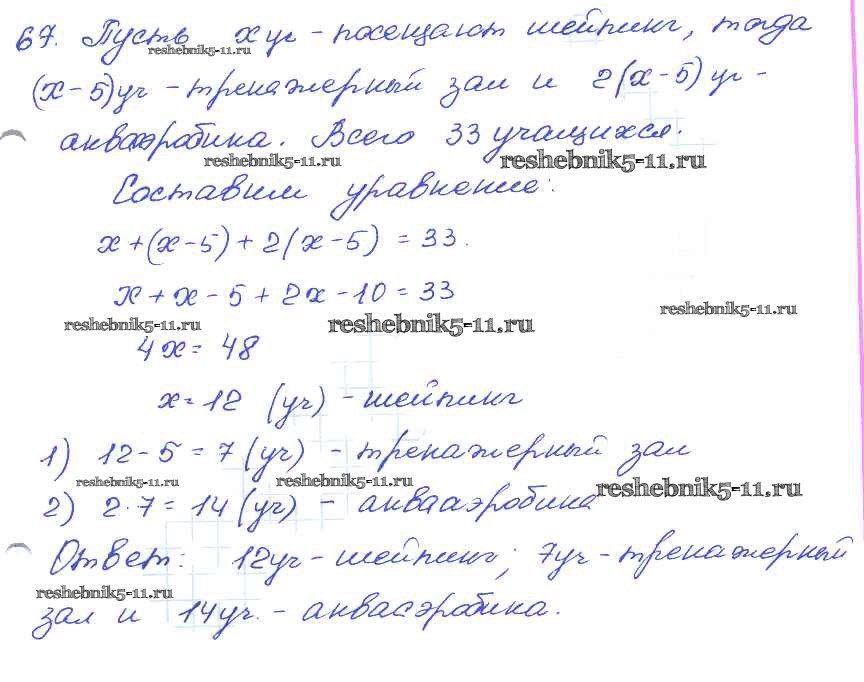 67. Пусть x уч - посещают шейпинг, тогда
reshebnik5-11.ru
(x-5)уч - тренажерный зал и 2(x-5) уч -
аквааэробика. Всего 33 учащихся.
reshebnik5-11.ru reshebnik5-11.ru
Составим уравнение:
x+(x-5)+2(x-5) = 33.
x+x-5+2x-10=33
reshebnik5-11.ru reshebnik5-11.ru reshebnik5-11.ru
4x= 48
x=12 (уч) - шейпинг
1) 12-5=7 (уч) - тренажерный зал
reshebnik5-11.ru reshebnik5-11.ru reshebnik5-11.ru
2) 2·7=14 (уч) - аквааэробика
Ответ: 12уч - шейпинг; 7уч - тренажерный
reshebnik5-11.ru
зал и 14уч. - аквааэробика.